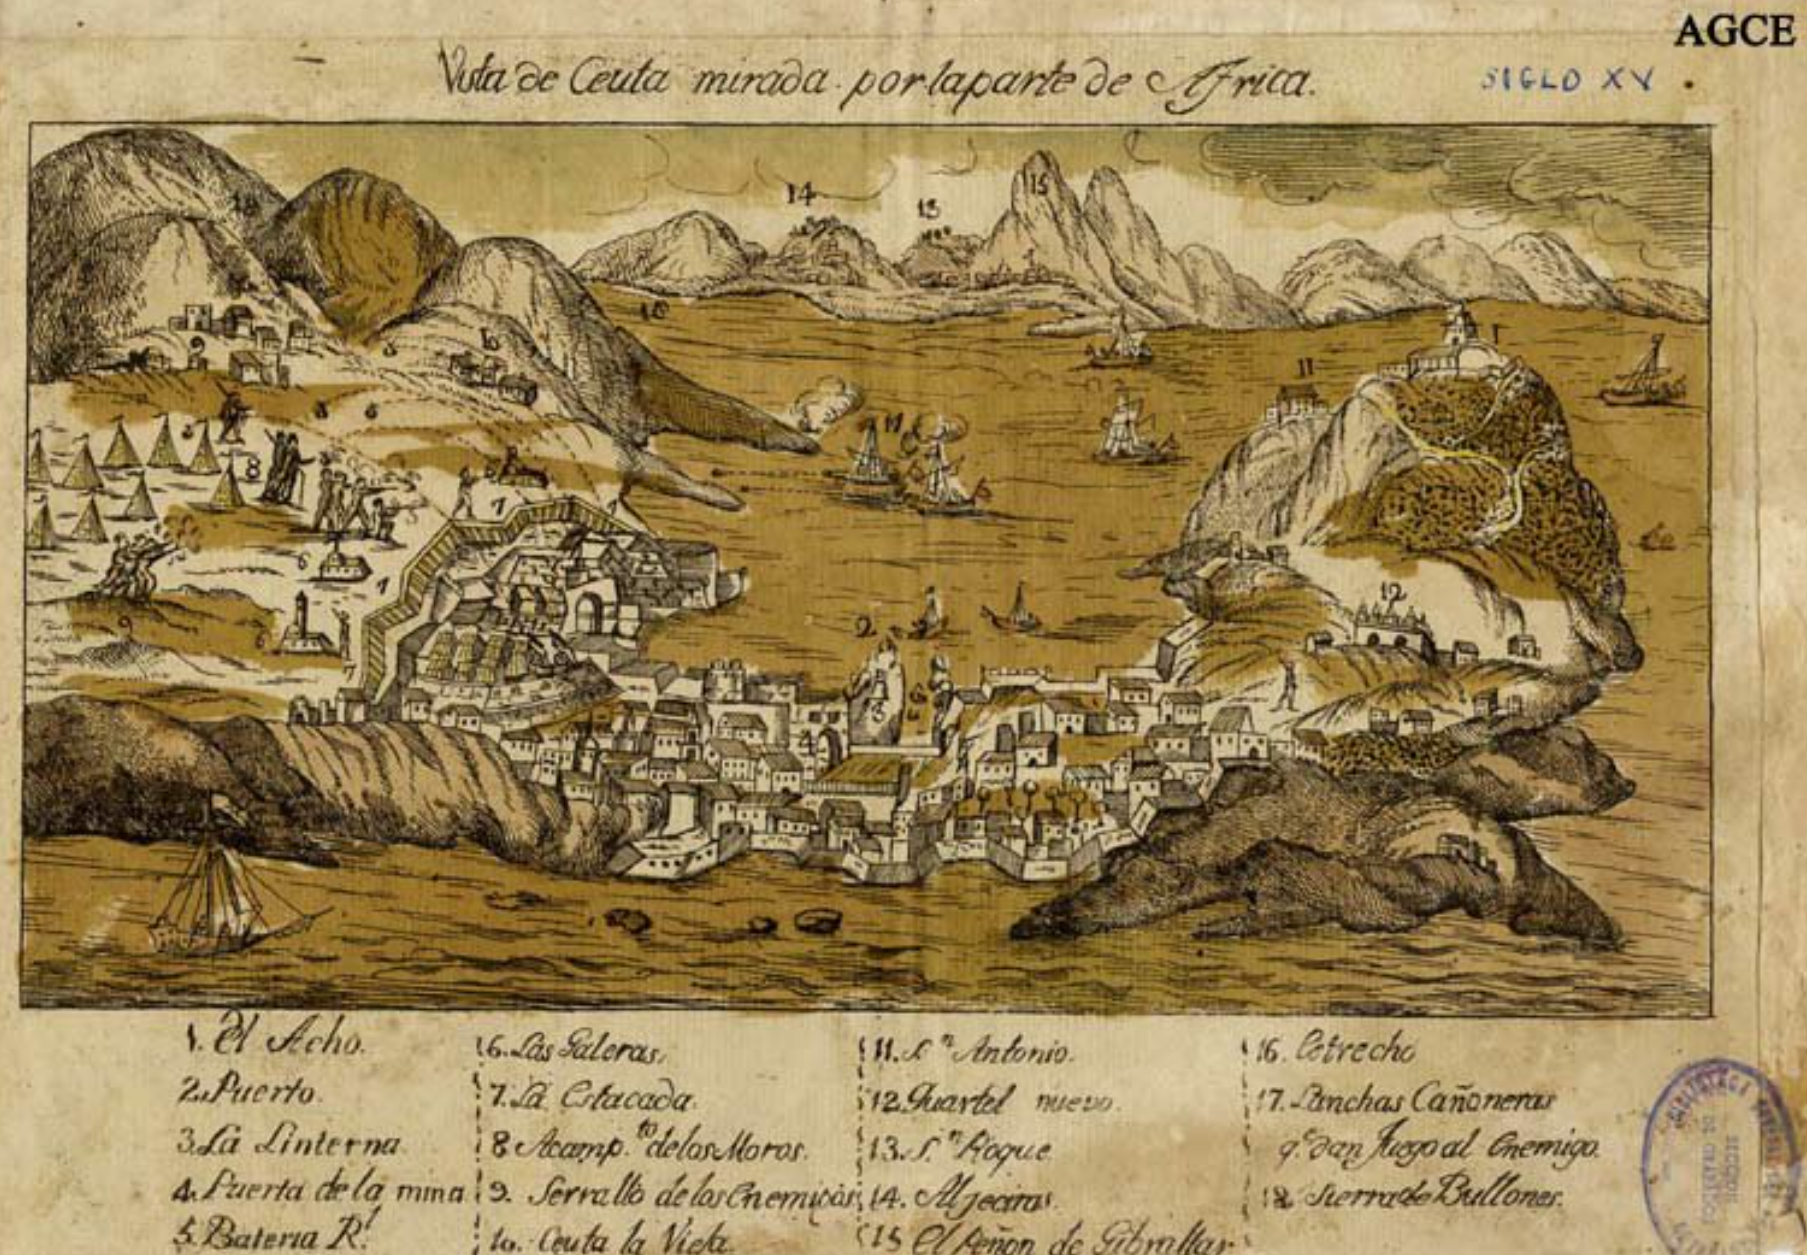 AGCE
Vista de Ceuta mirada por la parte de Africa.
SIGLO XV
14
13
15
18
16
1
11
10
5
9
8
17
7
6
7
12
2
9
7
3
4
1. El Acho.
2. Puerto.
3. La Linterna
4. Puerta de la mina
5. Bateria R.l
6. Las Galeras.
7. La Estacada.
8 Acamp.to de los Moros.
9. Serrallo de los Enemigos
10. Ceuta la Vieja
11. S.n Antonio.
12. Quartel nuevo.
13. S.n Roque
14. Aljeciras.
15 El Peñon de Gibraltar
16. Estrecho
17. Lanchas Cañoneras
q.e dan fuego al Enemigo.
18. Sierra de Bullones.